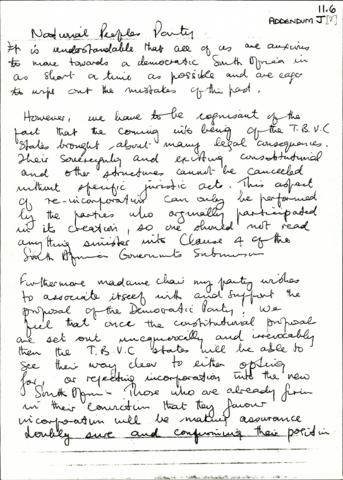 11.6
ADDENDUM J [2]
National Peoples Party
It is understandable that all of us are anxious
to move towards a democratic South Africa in
as short a time as possible and are eager
to wipe out the mistakes of the past.
However, we have to be cognisant of the
fact that the coming into being of the T.B.V.C
States brought about many legal consequences.
Their Sovereignty and existing constitutional
and other structures cannot be canceled
without specific juristic acts. This aspect
of re-incorporation can only be performed
by the parties who orginally participated
in its creation, so one should not read
anything sinister into Clause 4 of the
South African Governments Submission
Furthermore madame chair my party wishes
to associate itself with and support the
proposal of the Democratic Party. We
feel that once the constitutional proposal
are set out unequivocally and irrevocably
then the T.B.V.C states will be able to
see their way clear to either opting
for, or rejecting incorporation into the new
South Africa - Those who are already firm
in their conviction that they favour
incorporation will be making assurance
doubly sure and confirming their position